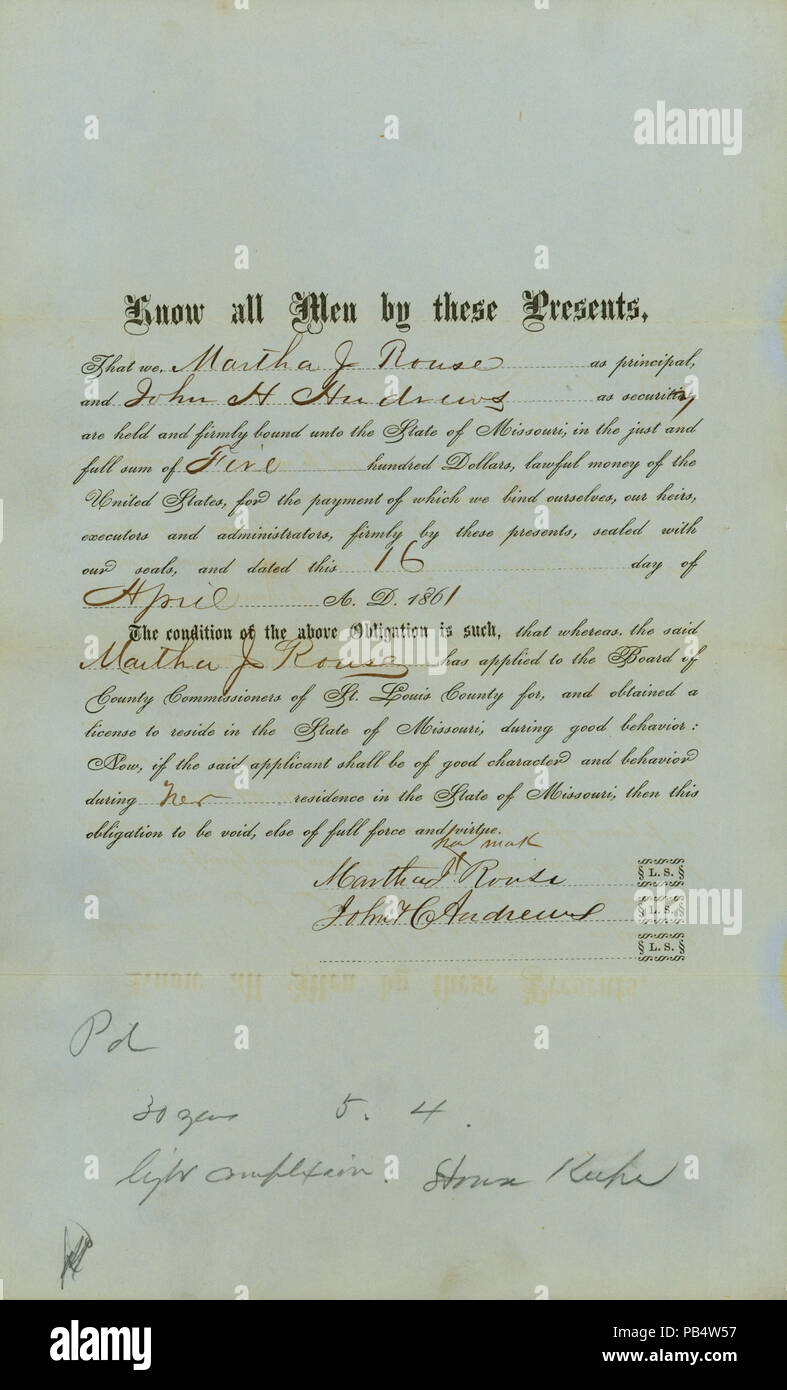 alamy
Know all Men by these Presents,
That we, Martha J Rouse as principal,
and John H Andrews as security
are held and firmly bound unto the State of Missouri, in the just and
full sum of Five hundred Dollars, lawful money of the
United States, for the payment of which we bind ourselves, our heirs,
executors and administrators, firmly by these presents, sealed with
our seals, and dated this 16 day of
April A. D. 1861
The condition of the above Obligation is such, that whereas, the said
Martha J Rouse has applied to the Board of
County Commissioners of St. Louis County for, and obtained a
license to reside in the State of Missouri, during good behavior:
Now, if the said applicant shall be of good character and behavior
during her residence in the State of Missouri, then this
obligation to be void, else of full force and virtue.
her mark
Martha J. Rouse § L. S. §
John H Andrews § L. S. §
§ L. S. §
Pd
30 years 5. 4.
light complexion. House Keeper
alamy
Image ID: PB4W57
www.alamy.com